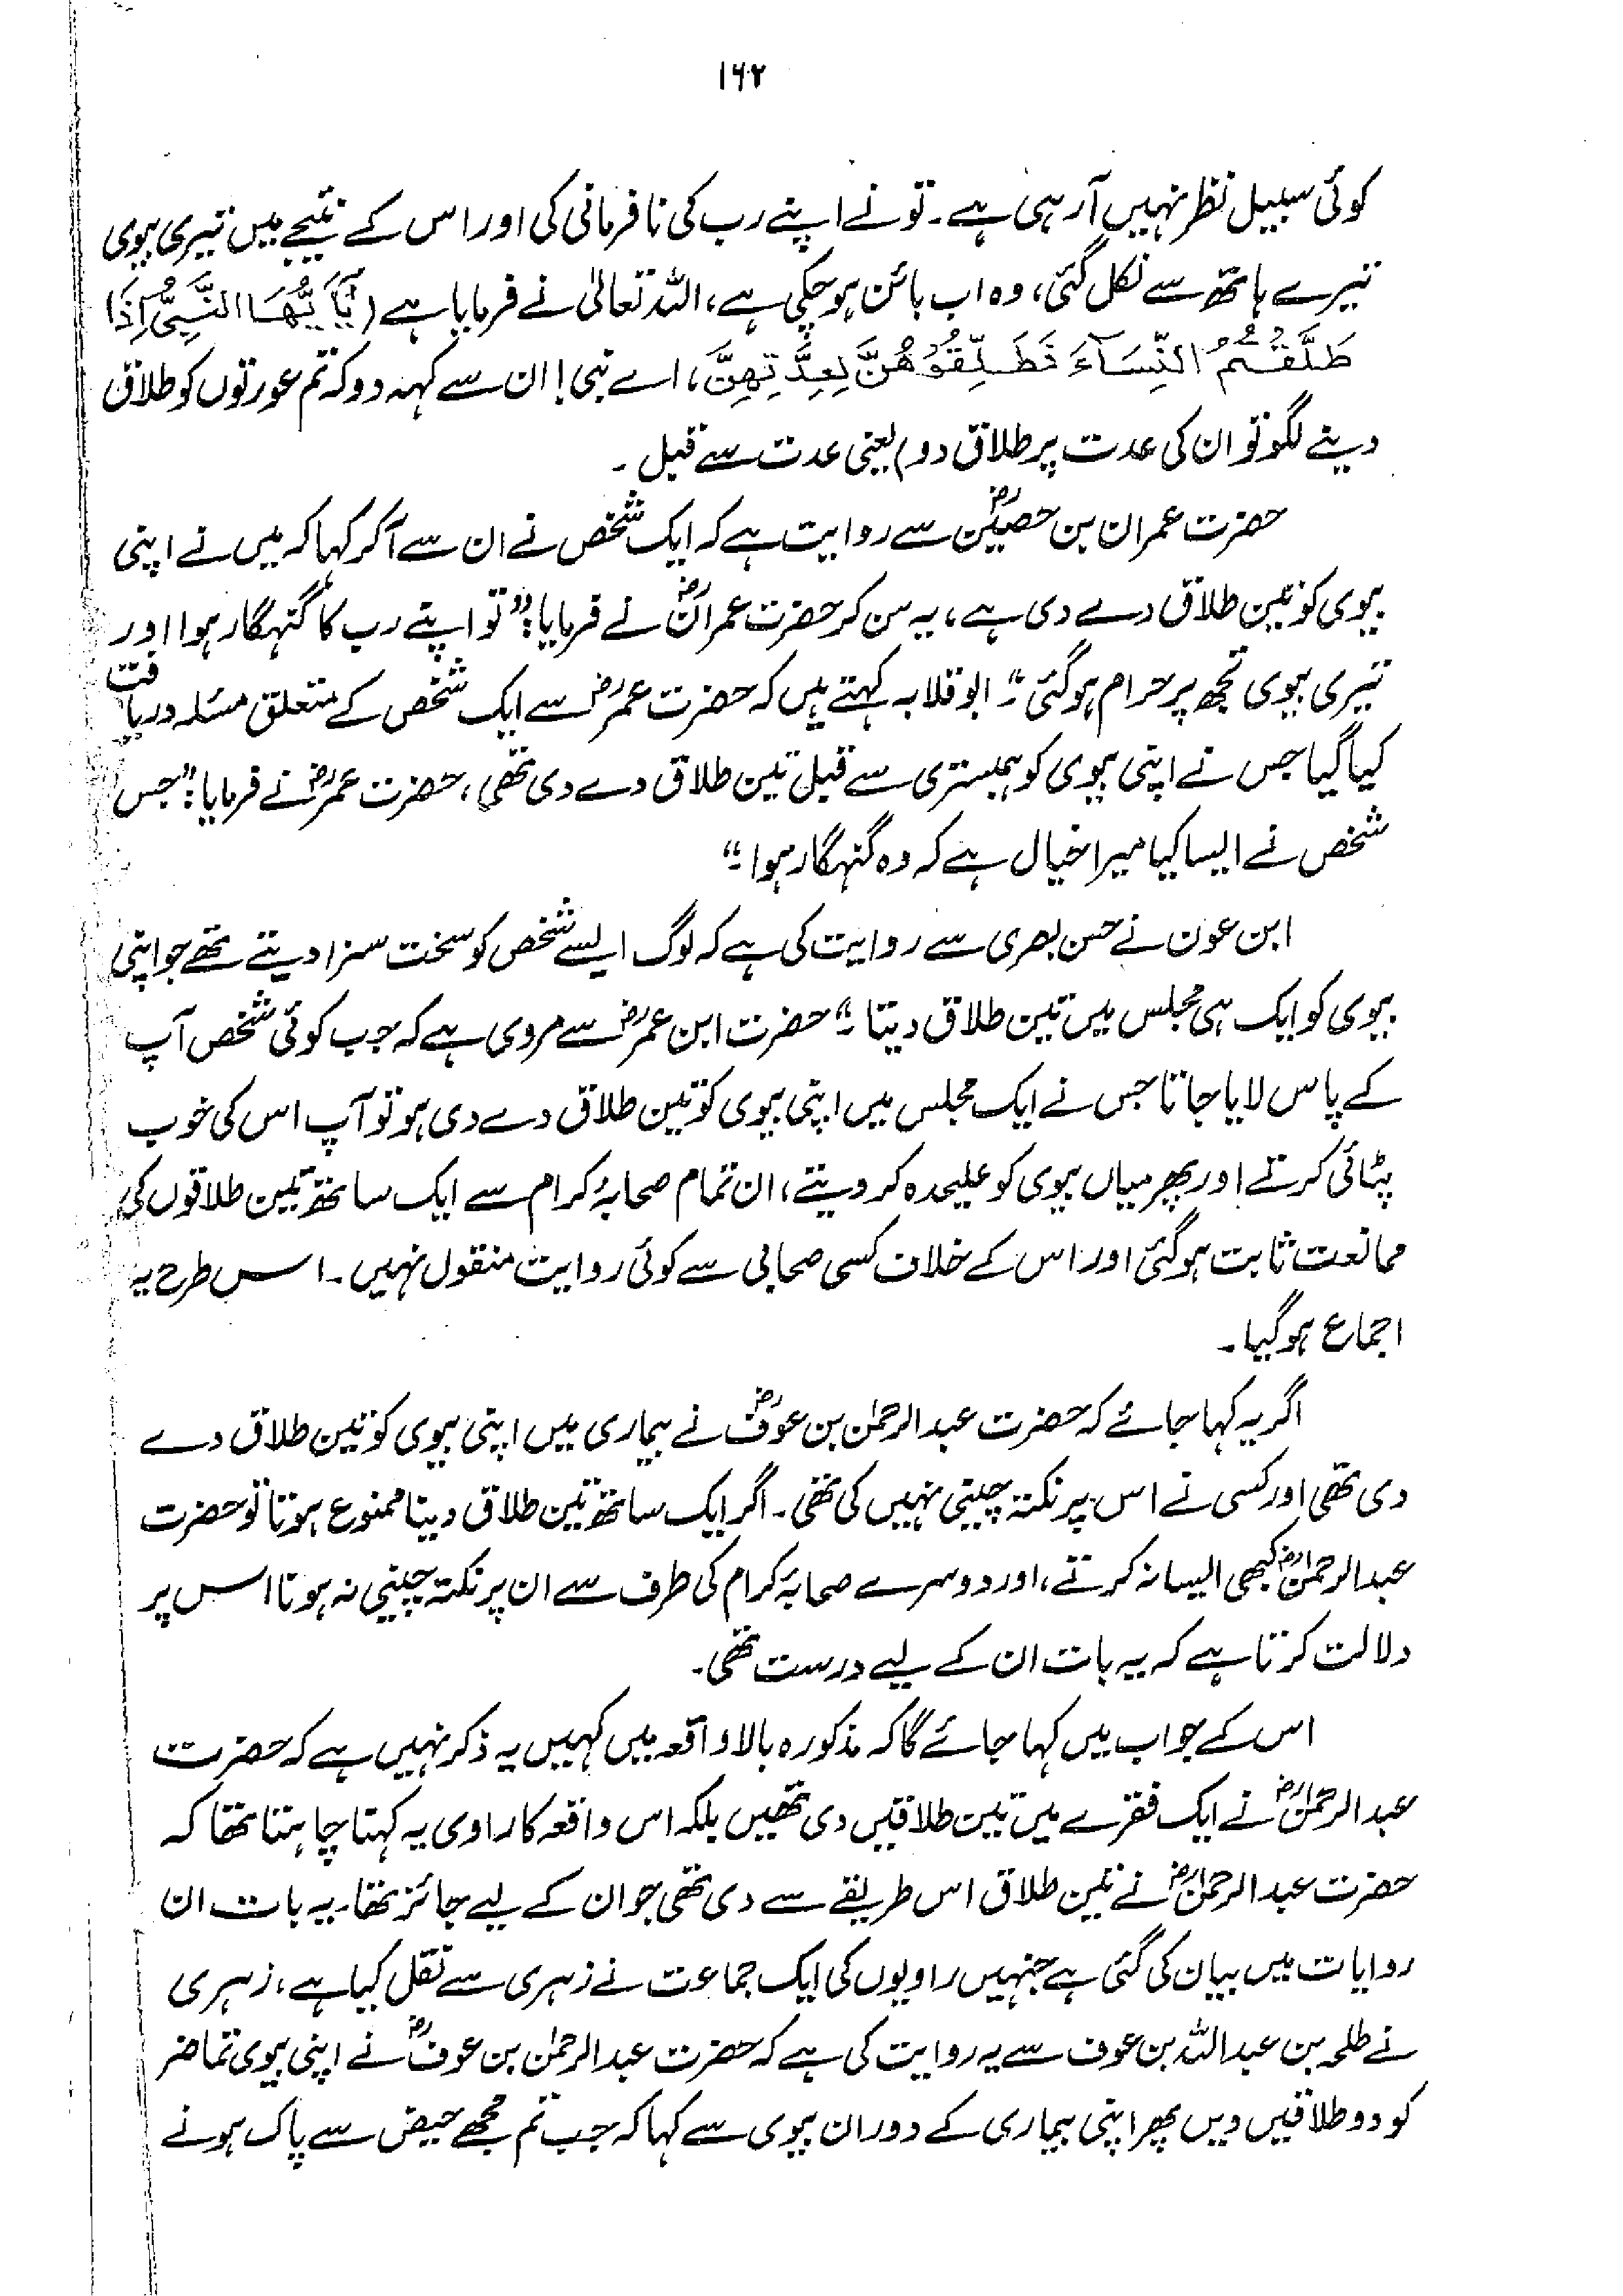 ۱۶۲
کوئی سبیل نظر نہیں آرہی ہے۔ تو نے اپنے رب کی نافرمانی کی اور اس کے نتیجے میں تیری بیوی
تیرے ہاتھ سے نکل گئی، وہ اب بائن ہوچکی ہے، اللہ تعالیٰ نے فرمایا ہے (يَآ اَيُّهَا النَّبِيُّ اِذَا
طَلَّقْتُمُ النِّسَآءَ فَطَلِّقُوْهُنَّ لِعِدَّتِهِنَّ، اے نبی! ان سے کہہ دو کہ تم عورتوں کو طلاق
دینے لگو تو ان کی عدت پر طلاق دو) یعنی عدت سے قبل۔
حضرت عمران بن حصینؓ سے روایت ہے کہ ایک شخص نے ان سے آکر کہا کہ میں نے اپنی
بیوی کو تین طلاق دے دی ہے، یہ سن کر حضرت عمرانؓ نے فرمایا: "تو اپنے رب کا گنہگار ہوا اور
تیری بیوی تجھ پر حرام ہوگئی"۔ ابوقلابہ کہتے ہیں کہ حضرت عمرؓ سے ایک شخص کے متعلق مسئلہ دریافت
کیا گیا جس نے اپنی بیوی کو ہمبستری سے قبل تین طلاق دے دی تھی، حضرت عمرؓ نے فرمایا: "جس
شخص نے ایسا کیا میرا خیال ہے کہ وہ گنہگار ہوا۔"
ابن عون نے حسن بصری سے روایت کی ہے کہ لوگ ایسے شخص کو سخت سزا دیتے تھے جو اپنی
بیوی کو ایک ہی مجلس میں تین طلاق دیتا۔" حضرت ابن عمرؓ سے مروی ہے کہ جب کوئی شخص آپ
کے پاس لایا جاتا جس نے ایک مجلس میں اپنی بیوی کو تین طلاق دے دی ہو تو آپ اس کی خوب
پٹائی کرتے اور پھر میاں بیوی کو علیحدہ کر دیتے، ان تمام صحابۂ کرام سے ایک ساتھ تین طلاقوں کی
ممانعت ثابت ہوگئی اور اس کے خلاف کسی صحابی سے کوئی روایت منقول نہیں۔ اس طرح یہ
اجماع ہوگیا۔
اگر یہ کہا جائے کہ حضرت عبدالرحمٰن بن عوفؓ نے بیماری میں اپنی بیوی کو تین طلاق دے
دی تھی اور کسی نے اس پر نکتہ چینی نہیں کی تھی۔ اگر ایک ساتھ تین طلاق دینا ممنوع ہوتا تو حضرت
عبدالرحمٰنؓ کبھی ایسا نہ کرتے، اور دوسرے صحابۂ کرام کی طرف سے ان پر نکتہ چینی نہ ہونا اس پر
دلالت کرتا ہے کہ یہ بات ان کے لیے درست تھی۔
اس کے جواب میں کہا جائے گا کہ مذکورہ بالا واقعہ میں کہیں یہ ذکر نہیں ہے کہ حضرت
عبدالرحمٰنؓ نے ایک فقرے میں تین طلاقیں دی تھیں بلکہ اس واقعہ کا راوی یہ کہنا چاہتا تھا کہ
حضرت عبدالرحمٰنؓ نے تین طلاق اس طریقے سے دی تھی جو ان کے لیے جائز تھا۔ یہ بات ان
روایات میں بیان کی گئی ہے جنہیں راویوں کی ایک جماعت نے زہری سے نقل کیا ہے، زہری
نے طلحہ بن عبداللہ بن عوف سے یہ روایت کی ہے کہ حضرت عبدالرحمٰن بن عوفؓ نے اپنی بیوی تماضر
کو دو طلاقیں دیں پھر اپنی بیماری کے دوران بیوی سے کہا کہ جب تم مجھے حیض سے پاک ہونے